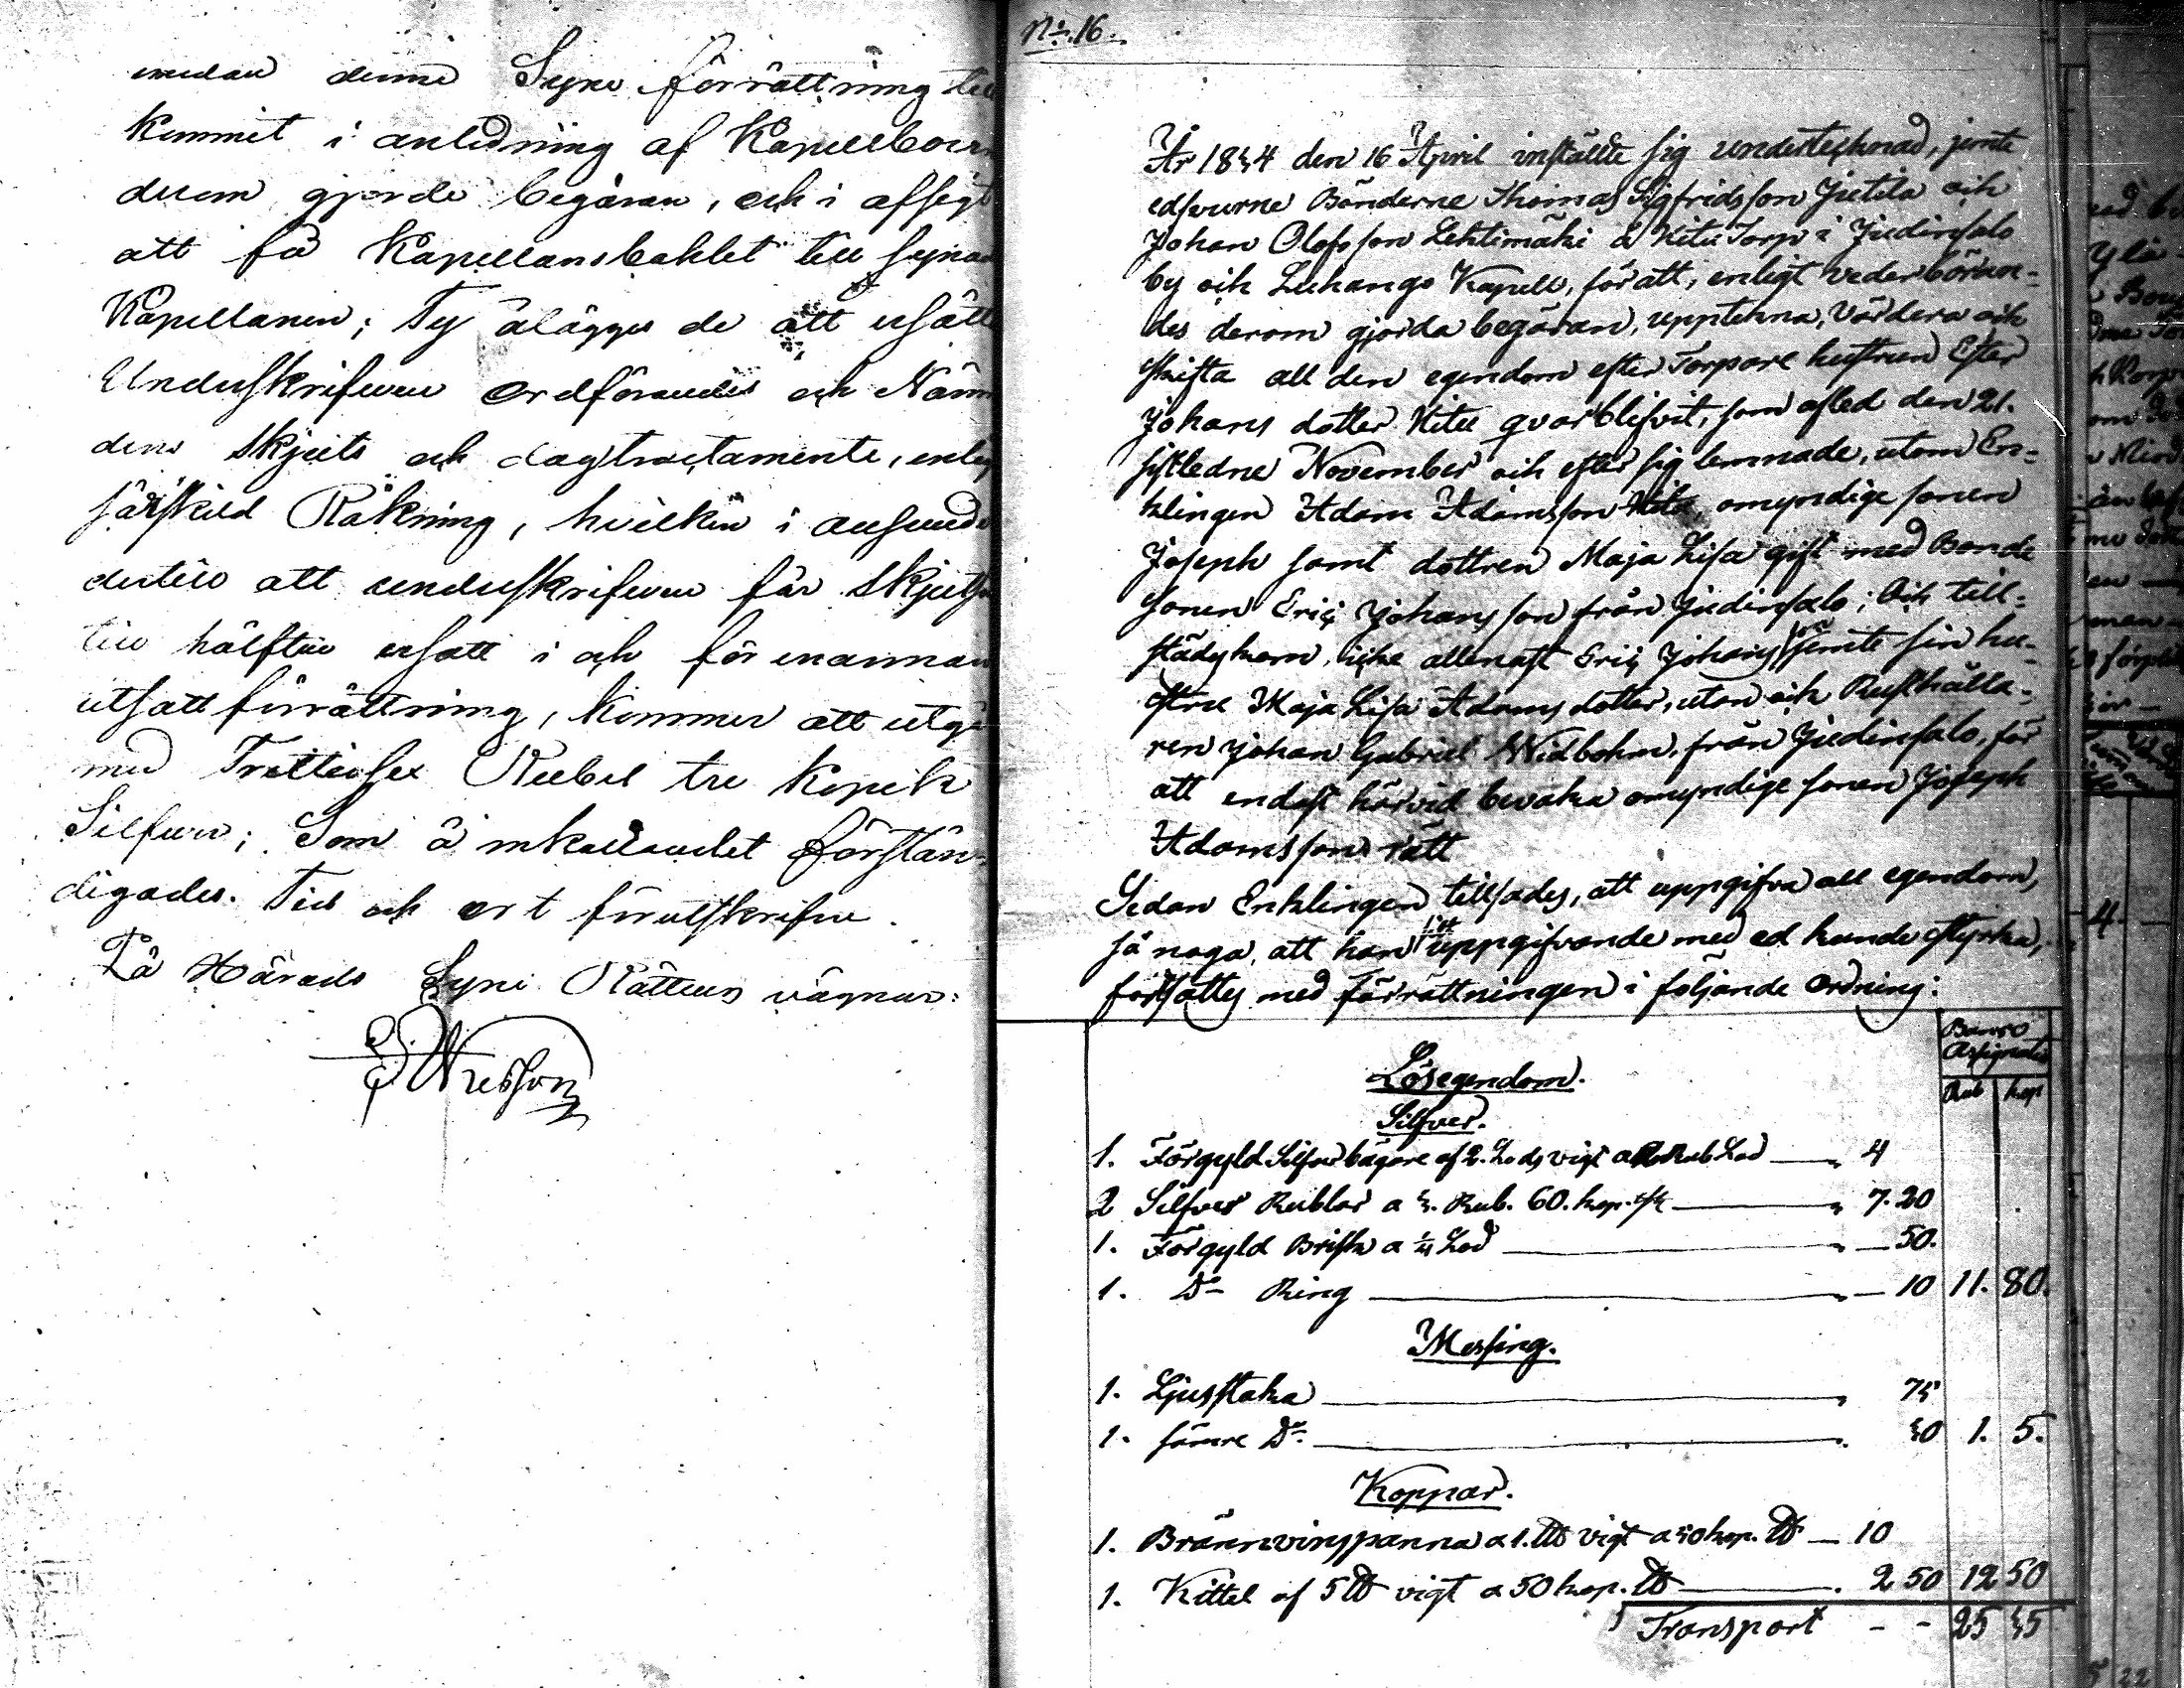 emedan denna Syne förrättning till
kommit i anledning af Kapellboer
derom gjorde begäran, och i afsigt
att få Kapellansbohlet till synad
Kapellanen; Ty ålägges de att ersätta
Underskrifven ordförandes och Näm
dens skjuts och dagtractamente, enligt
särskild Räkning, hvilken i anseende
dertill att underskrifven får skjutsen
till hälften ersatt i och för en annan
utsatt förrättning, kommer att utgå
med Trettiosex Rubel tre Kopek
Silfver; Som å inkallandet förstän-
digades. Tid och ort förutskrifne.
På Härads Syne Rättens vägnar:
N:o 16.
År 1844 den 16 April instälte sig undertecknad, jemte
edsvurne Bönderne Thomas Sigfridsson Jutila och
Johan Olofsson Lehtimäki å Kitu Torp i Judinsalo
by och Luhango Kapell, för att, enligt vederböran-
des derom gjorda begäran, upptekna, värdera och
skifta all den egendom efter Torpare hustrun Ester
Johans dotter Kitu qvarblifvit, som afled den 21.
sistledne November och efter sig lemnade, utom En-
klingen Adam Adamsson Kitu, omyndige sonen
Joseph samt dottren Maja Lisa gift med Bonde
sonen Eric Johansson från Judinsalo; Och till-
städeskom, icke allenast Eric Johansson jemte sin hu-
stru Maja Lisa Adams dotter, utan och Rusthålla-
ren Johan Gabriel Widbohm, från Judinsalo, för
att endast härvid bevaka omyndige sonen Joseph
Adamssons rätt
Sedan Enklingen tillsades, att uppgifva all egendom,
så noga, att han sitt uppgifvande med ed kunde styrka,
fortsattes med förrättningen i följande ordning:
Banco
Assignater
Rub kop
Lösegendom.
Silfver.
1. Förgyld Silfverbägare af 2. Lods vigt a 2 Rub Lod — 4
2 Silfver Rublar a 3. Rub. 60. kop. st — 7. 20
1. Förgyld Briska a ¼ Lod — 50.
1. D:o Ring — 10 11. 80.
Messing.
1. Ljusstaka — 75
1. sämre D:o — 30 1. 5.
Koppar.
1. Brännvinspanna a 1. L℔ vigt a 50 kop. ℔ — 10
1. Kittel af 5 ℔ vigt a 50 kop. ℔ — 2 50 12 50
Transport - - 25 35